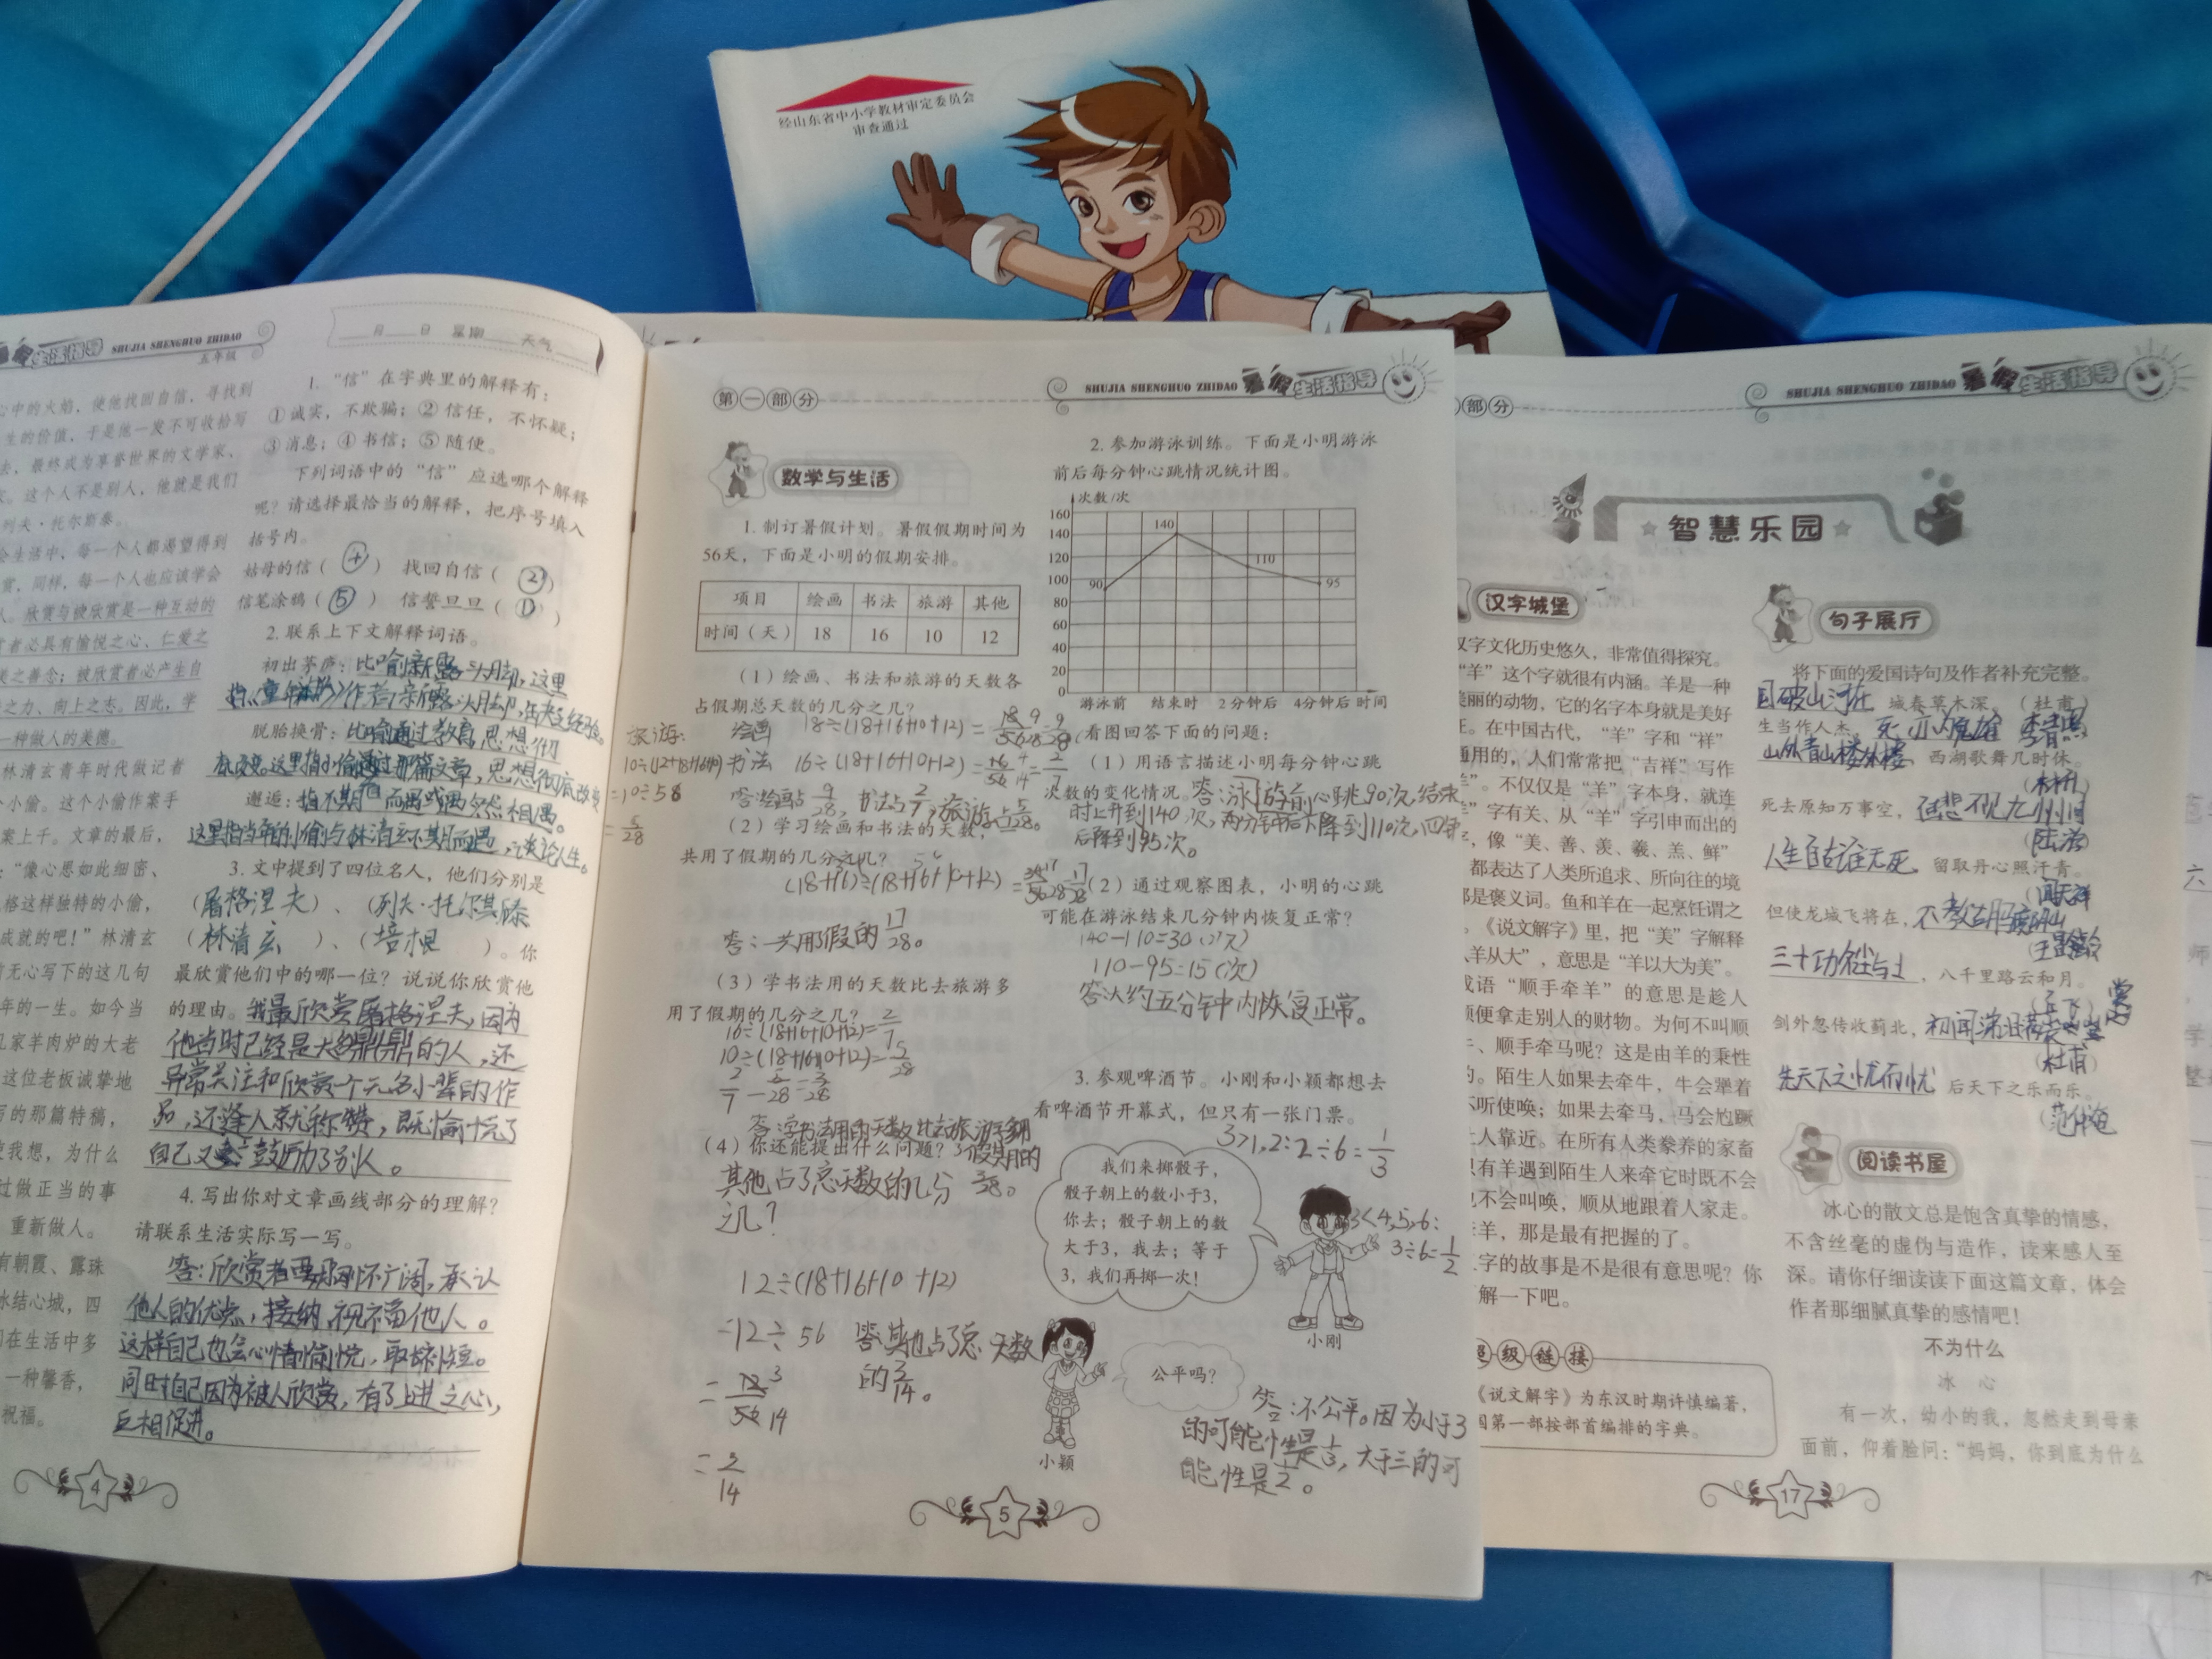 经山东省中小学教材审定委员会
审查通过
生活指导 SHUJIA SHENGHUO ZHIDAO
五年级
心中的火焰，使他找回自信，寻找到
生的价值，于是他一发不可收拾写
去，最终成为享誉世界的文学家、
这个人不是别人，他就是我们
列夫·托尔斯泰。
会生活中，每一个人都渴望得到
赏，同样，每一个人也应该学会
人。欣赏与被欣赏是一种互动的
赏者必具有愉悦之心、仁爱之
美之善念；被欣赏者必产生自
之力、向上之志。因此，学
一种做人的美德。
林清玄青年时代做记者
个小偷。这个小偷作案手
案上千。文章的最后，
：“像心思如此细密、
格这样独特的小偷，
成就的吧！”林清玄
无心写下的这几句
年的一生。如今当
几家羊肉炉的大老
这位老板诚挚地
写的那篇特稿，
使我想，为什么
过做正当的事
重新做人。
有朝霞、露珠
冰结心城，四
们在生活中多
一种馨香，
祝福。
月 日 星期 天气
1. “信”在字典里的解释有：
① 诚实，不欺骗；② 信任，不怀疑；
③ 消息；④ 书信；⑤ 随便。
下列词语中的“信”应选哪个解释
呢？请选择最恰当的解释，把序号填入
括号内。
姑母的信（ ） 找回自信（ ② ）
信笔涂鸦（ ⑤ ） 信誓旦旦（ ① ）
2. 联系上下文解释词语。
初出茅庐：比喻新露头角，这里
脱胎换骨：比喻通过教育，思想彻
这里指小偷通过那篇文章，思想彻底改变
邂逅：指不期而遇或偶然相遇。
这里指当年的小偷与林清玄不期而遇，谈论人生。
3. 文中提到了四位名人，他们分别是
（屠格涅夫）、（列夫·托尔斯泰
（林清玄 ）、（培根 ）。你
最欣赏他们中的哪一位？说说你欣赏他
的理由。我最欣赏屠格涅夫，因为
他当时已经是大名鼎鼎的人，还
异常关注和欣赏一个无名小辈的作
品，还逢人就称赞，既愉悦了
自己又鼓励了别人。
4. 写出你对文章画线部分的理解？
请联系生活实际写一写。
答：欣赏者要胸怀广阔，承认
他人的优点，接纳、祝福他人。
这样自己也会心情愉悦，取长补短。
同时自己因为被人欣赏，有了上进之心，
互相促进。
4
第一部分
SHUJIA SHENGHUO ZHIDAO 暑假生活指导
数学与生活
1. 制订暑假计划。暑假假期时间为
56天，下面是小明的假期安排。
项目 绘画 书法 旅游 其他
时间（天） 18 16 10 12
（1）绘画、书法和旅游的天数各
占假期总天数的几分之几？
绘画 18÷(18+16+10+12) = 18/56 = 9/28
旅游：
书法 16÷(18+16+10+12) = 16/56 = 2/7
=10÷56
= 5/28
答：绘画占9/28，书法占2/7，旅游占5/28。
（2）学习绘画和书法的天数，
共用了假期的几分之几？
(18+16)÷(18+16+10+12) = 34/56 = 17/28
答：一共用假的17/28。
（3）学书法用的天数比去旅游多
用了假期的几分之几？
16÷(18+16+10+12)=2/7
10÷(18+16+10+12)=5/28
2/7-5/28=3/28
答：学书法用的天数比去旅游多用
了假期的3/28。
（4）你还能提出什么问题？
其他占了总天数的几分
之几？
12÷(18+16+10+12)
=12÷56
=12/56
=3/14
答：其他占了总天数
的3/14。
2. 参加游泳训练。下面是小明游泳
前后每分钟心跳情况统计图。
次数/次
160
140
120
100
80
60
40
20
0
90
140
110
95
游泳前 结束时 2分钟后 4分钟后 时间
看图回答下面的问题：
（1）用语言描述小明每分钟心跳
次数的变化情况。答：游泳前心跳90次，结束
时上升到140次，两分钟后下降到110次，四分钟
后降到95次。
（2）通过观察图表，小明的心跳
可能在游泳结束几分钟内恢复正常？
140-110=30（次）
110-95=15（次）
答：大约五分钟内恢复正常。
3. 参观啤酒节。小刚和小颖都想去
看啤酒节开幕式，但只有一张门票。
3>1,2：2÷6=1/3
我们来掷骰子，
骰子朝上的数小于3，
你去；骰子朝上的数
大于3，我去；等于
3，我们再掷一次！
3<4,5,6：
3÷6=1/2
小刚
公平吗？
小颖
答：不公平。因为小于3
的可能性是1/3，大于三的可
能性是1/2。
5
部分
SHUJIA SHENGHUO ZHIDAO 暑假生活指导
智慧乐园
汉字城堡
汉字文化历史悠久，非常值得探究。
“羊”这个字就很有内涵。羊是一种
美丽的动物，它的名字本身就是美好
在中国古代，“羊”字和“祥”
通用的，人们常常把“吉祥”写作
羊”。不仅仅是“羊”字本身，就连
羊”字有关、从“羊”字引申而出的
字，像“美、善、羡、羲、羔、鲜”
都表达了人类所追求、所向往的境
都是褒义词。鱼和羊在一起烹饪谓之
《说文解字》里，把“美”字解释
从羊从大”，意思是“羊以大为美”。
成语“顺手牵羊”的意思是趁人
顺便拿走别人的财物。为何不叫顺
牛、顺手牵马呢？这是由羊的秉性
的。陌生人如果去牵牛，牛会犟着
不听使唤；如果去牵马，马会尥蹶
让人靠近。在所有人类豢养的家畜
只有羊遇到陌生人来牵它时既不会
也不会叫唤，顺从地跟着人家走。
羊，那是最有把握的了。
字的故事是不是很有意思呢？你
解一下吧。
超级链接
《说文解字》为东汉时期许慎编著，
国第一部按部首编排的字典。
句子展厅
将下面的爱国诗句及作者补充完整。
国破山河在，城春草木深。（杜甫）
生当作人杰，死亦为鬼雄 李清照
山外青山楼外楼，西湖歌舞几时休。
（林升）
死去原知万事空，但悲不见九州同
（陆游）
人生自古谁无死，留取丹心照汗青。
（文天祥
但使龙城飞将在，不教胡马度阴山
（王昌龄
三十功名尘与土，八千里路云和月。
剑外忽传收蓟北，初闻涕泪满衣裳
（杜甫）
先天下之忧而忧 后天下之乐而乐。
（范仲淹
阅读书屋
冰心的散文总是饱含真挚的情感，
不含丝毫的虚伪与造作，读来感人至
深。请你仔细读读下面这篇文章，体会
作者那细腻真挚的感情吧！
不为什么
冰 心
有一次，幼小的我，忽然走到母亲
面前，仰着脸问：“妈妈，你到底为什么
17